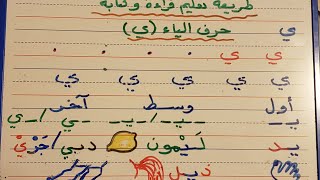 طريقة تعليم قراءة وكتابة
حرف الياء (ي)
ي
ي ي
ي ي ي ي ي
أول وسط آخر
يـ ـيـ ـي / ي
يد لَيْمون دبي / جَرْيْ
ذيل